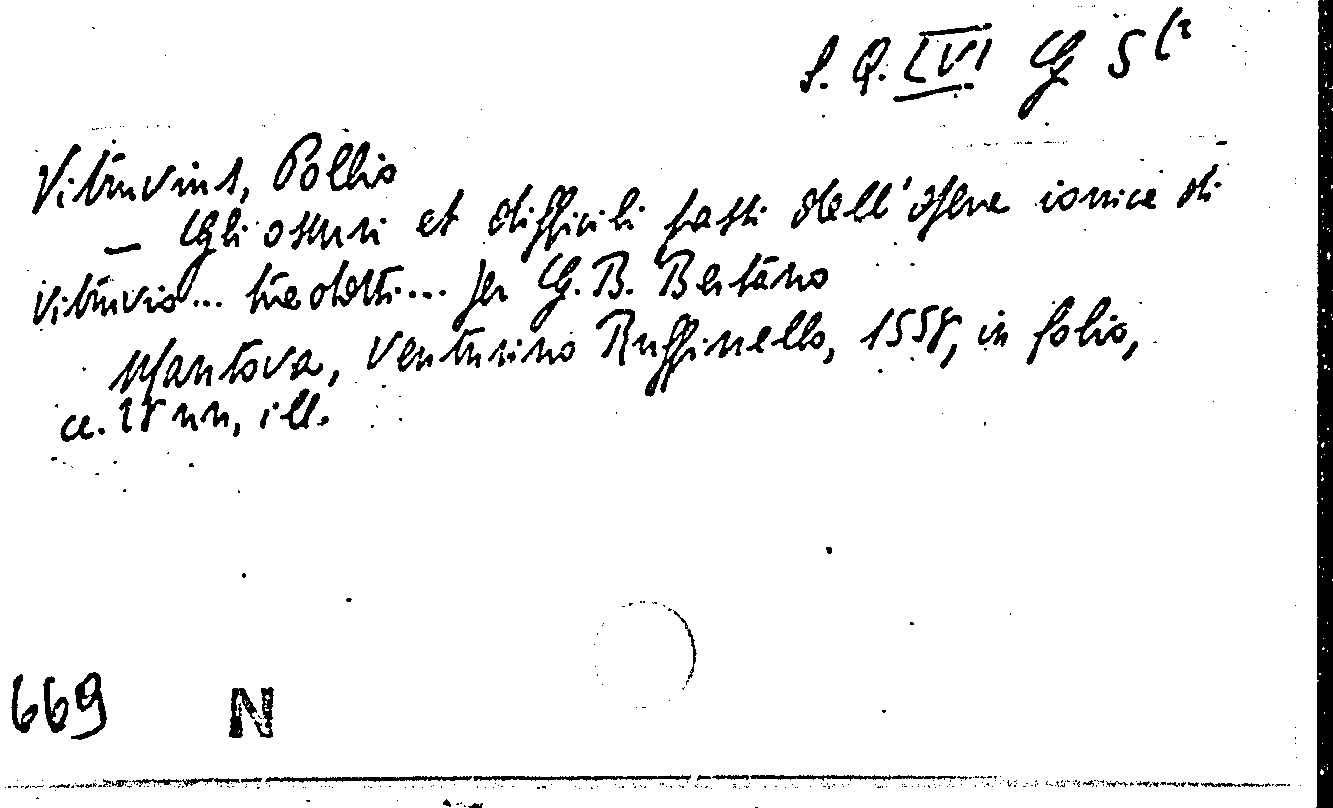 S. Q. LVI G 5 (2
Vitruvius, Pollio
— Gli oscuri et difficili passi dell'opera ionica di
Vitruvio... tradotti... per G. B. Bertano
Mantova, Venturino Ruffinello, 1558, in folio,
cc. 28 nn, ill.
669 N